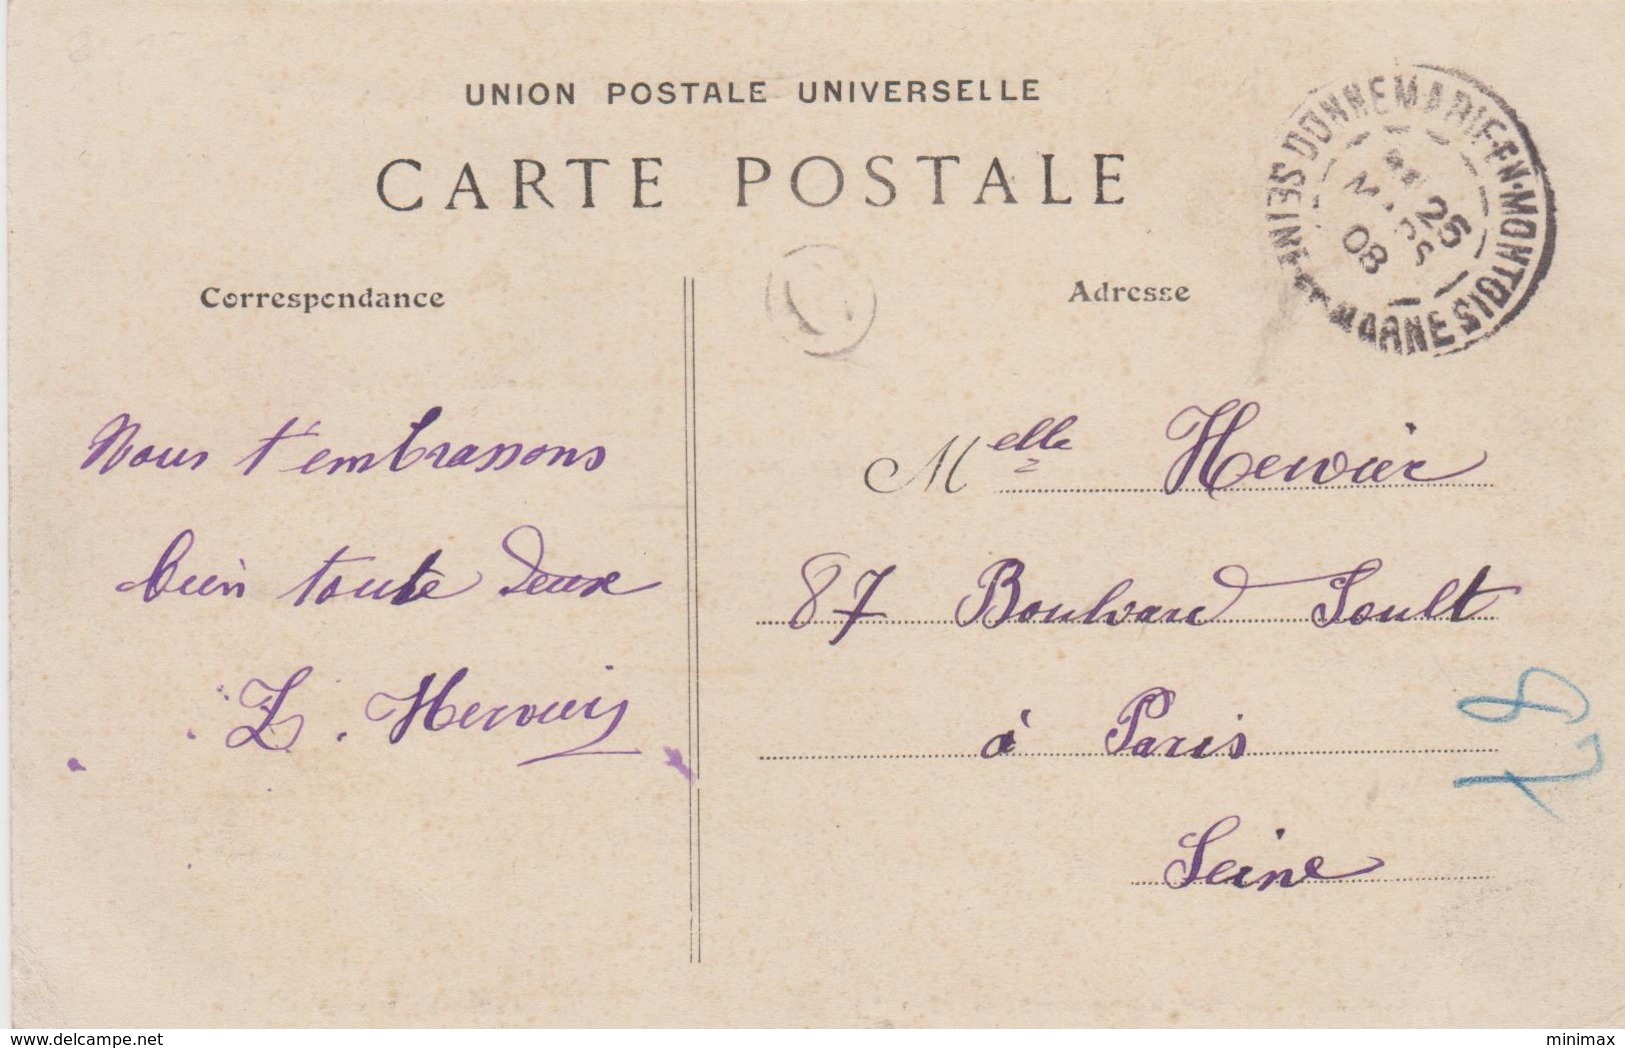 UNION POSTALE UNIVERSELLE
CARTE POSTALE
DONNEMARIE-EN-MONTOIS
SEINE-ET-MARNE
25
MARS
08
Correspondance
Adresse
Nous t'embrassons
bien toute deux
Melle
87 Boulvard Soult
à Paris
Seine
delcampe.net
minimax